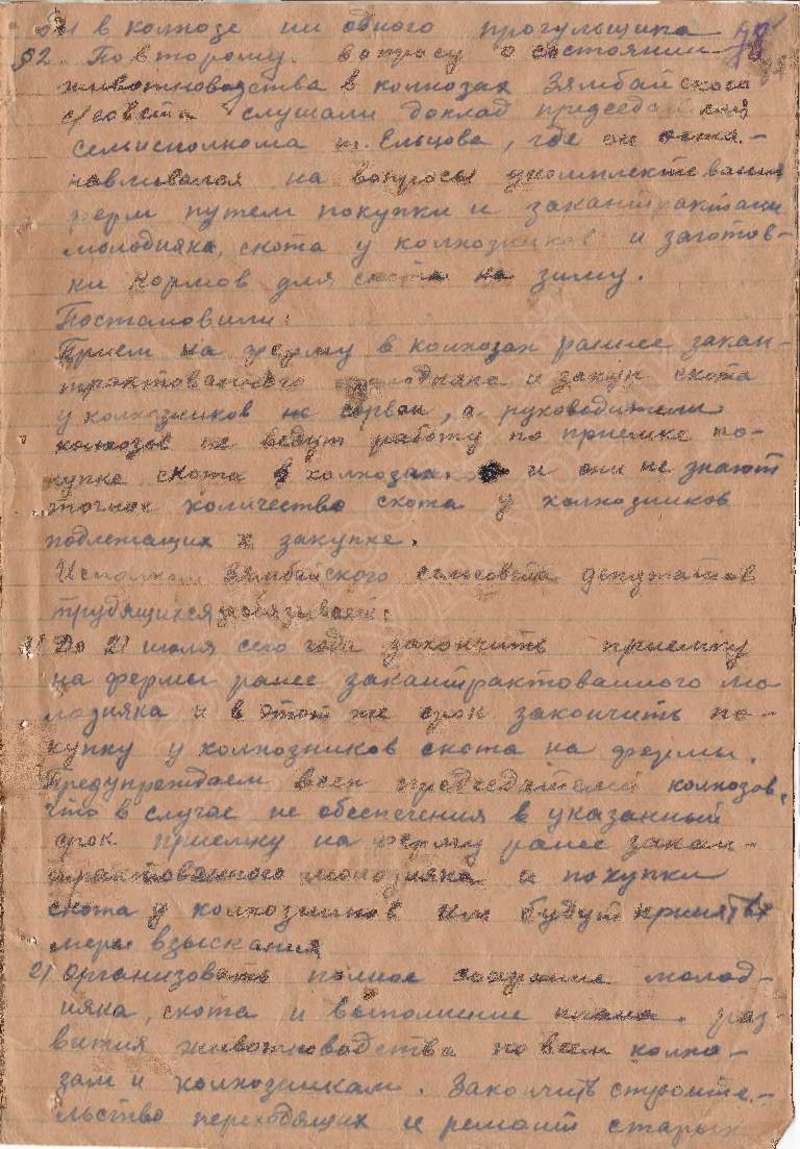 в колхозе ни одного прогульщика
§2. По второму вопросу о состоянии
животноводства в колхозах Зямбайского
с/совета слушали доклад председателя
сельисполкома т. Ельцова, где он оста-
навливался на вопросы укомплектования
ферм путем покупки и закантрактации
молодняка, скота у колхозников и заготов-
ки кормов для скота на зиму.
Постановили:
Прием на ферму в колхозах раннее закан-
трактованного молодняка и закуп скота
у колхозников не сорван, а руководители
колхозов не ведут работу по приемке по-
купке скота в колхозах. и они не знают
точное количество скота у колхозников
подлежащих к закупке.
Исполком Зямбайского сельсовета депутатов
трудящихся обязывает:
1) До 21 июля сего года закончить приемку
на фермы ранее закантрактованного мо
лодняка и в этот же срок закончить по-
купку у колхозников скота на фермы.
Предупреждаем всех председателей колхозов,
что в случае не обеспечения в указанный
срок приемку на ферму ранее закан-
трактованного молодняка и покупки
скота у колхозников им будут приняты
меры взыскания
2) Организовать полное сохрание молод-
няка, скота и выполнение плана раз-
вития животноводства по всем колхо-
зам и колхозникам. Закончить строите-
льство переходящих и ремонт старых